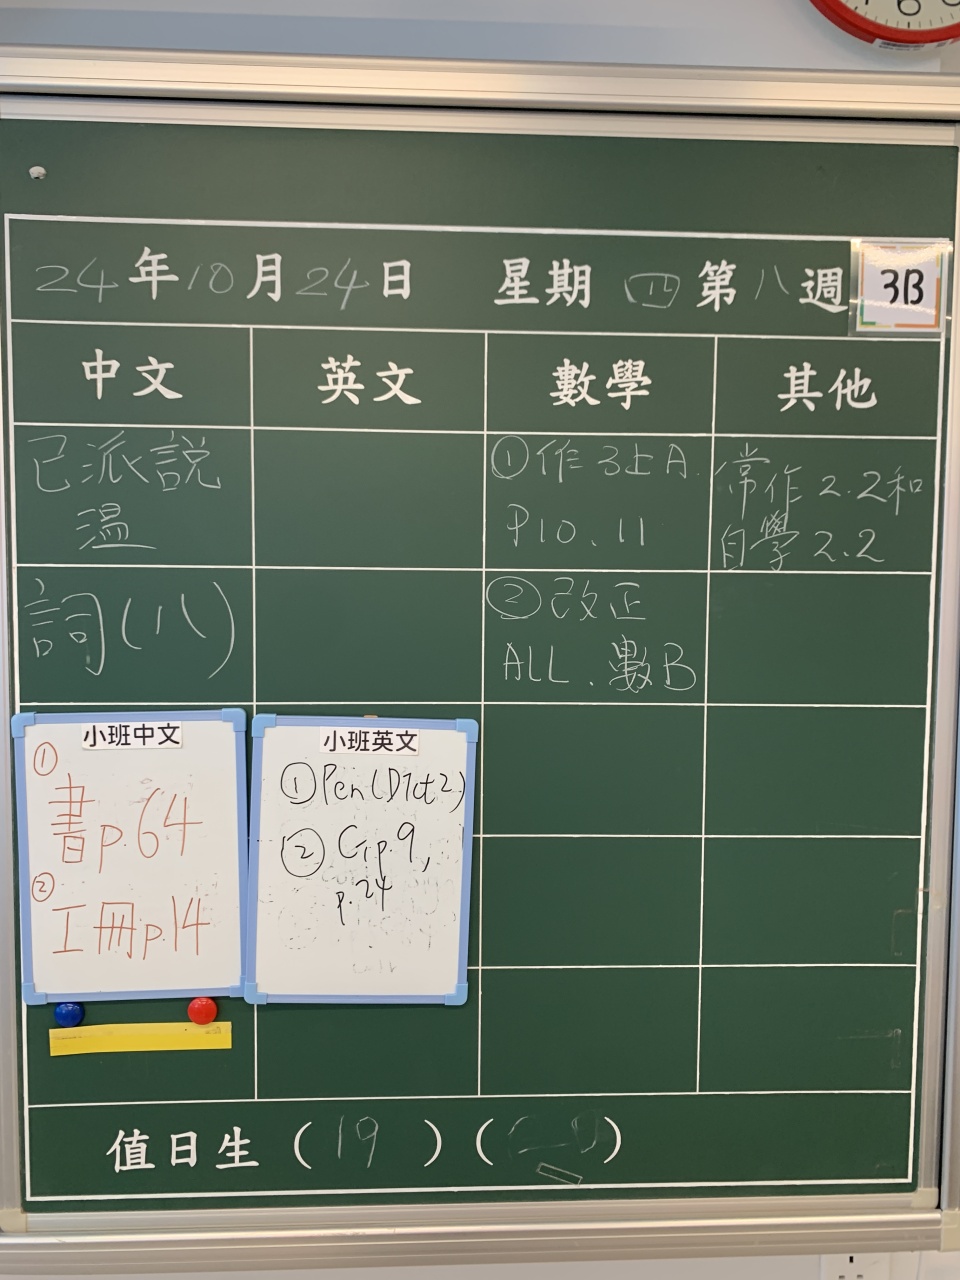 24年10月24日 星期四第八週 3B
中文 英文 數學 其他
已派説
溫
詞(八)
①作3上A
P10、11
②改正
ALL、數B
常作2.2和
自學2.2
小班中文
①
書p.64
②
工冊p.14
小班英文
①Pen(Dict2)
②G p.9,
p.24
值日生(19)( )
6